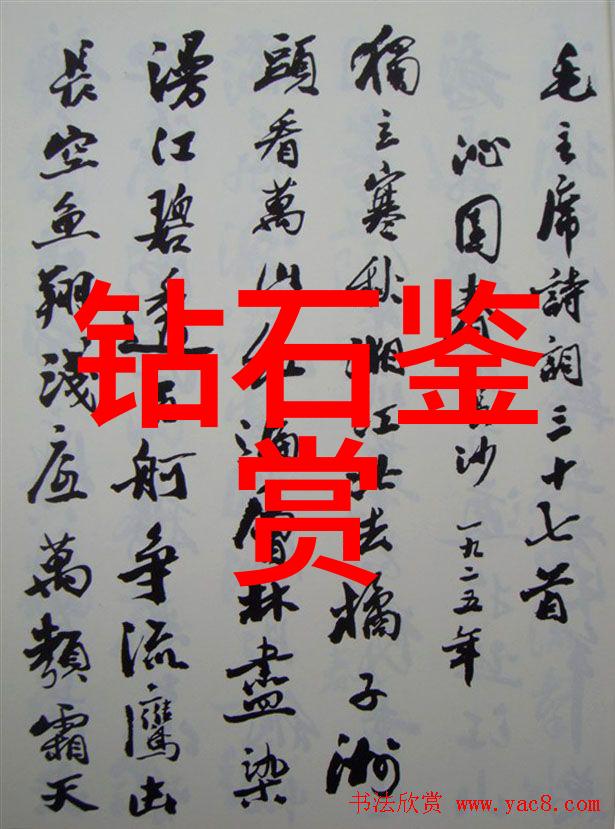 毛主席詩詞三十七首
沁園春長沙 一九二五年
獨立寒秋湘江北去橘子洲
頭看萬山紅遍層林盡染
漫江碧透百舸争流鷹击
長空魚翔淺底萬類霜天
钻石鉴
赏
书法欣赏 www.yac8.com